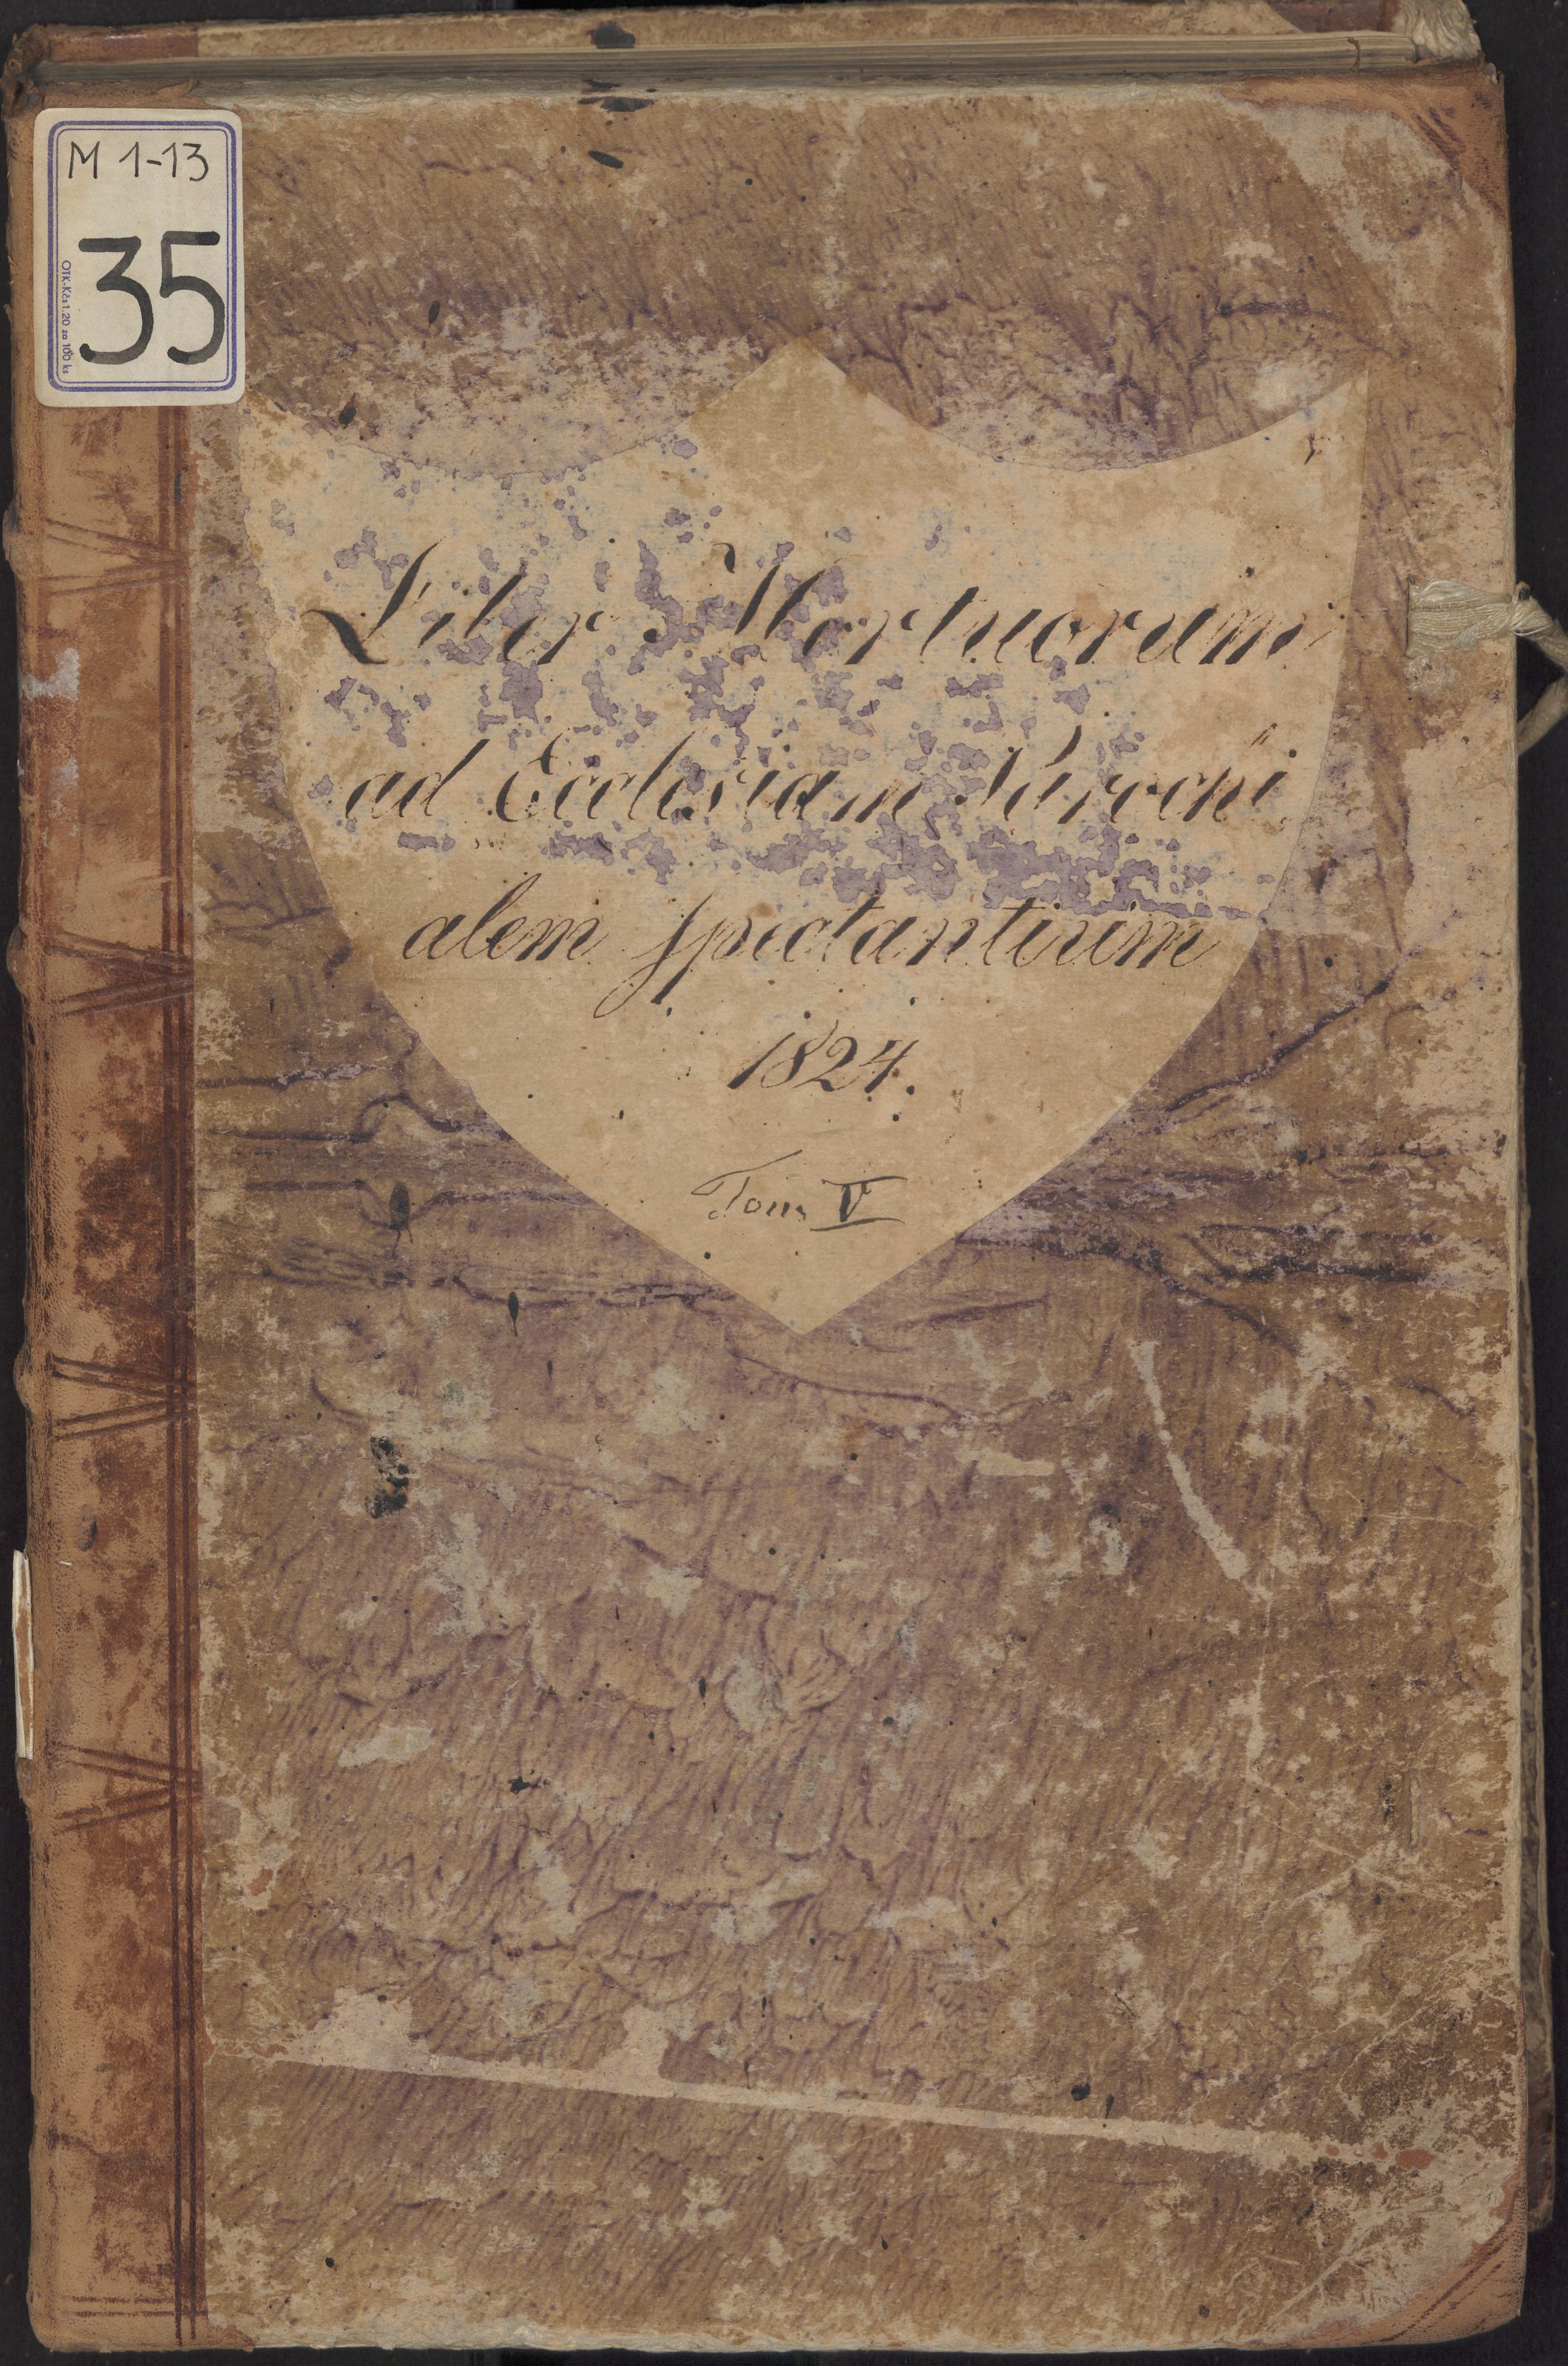 M 1-13
35
OTK-Kčs 1.20 za 100 ks
Liber Mortuorum
ad Ecclesiam Parochi
alem spectantium
1824.
Tom V